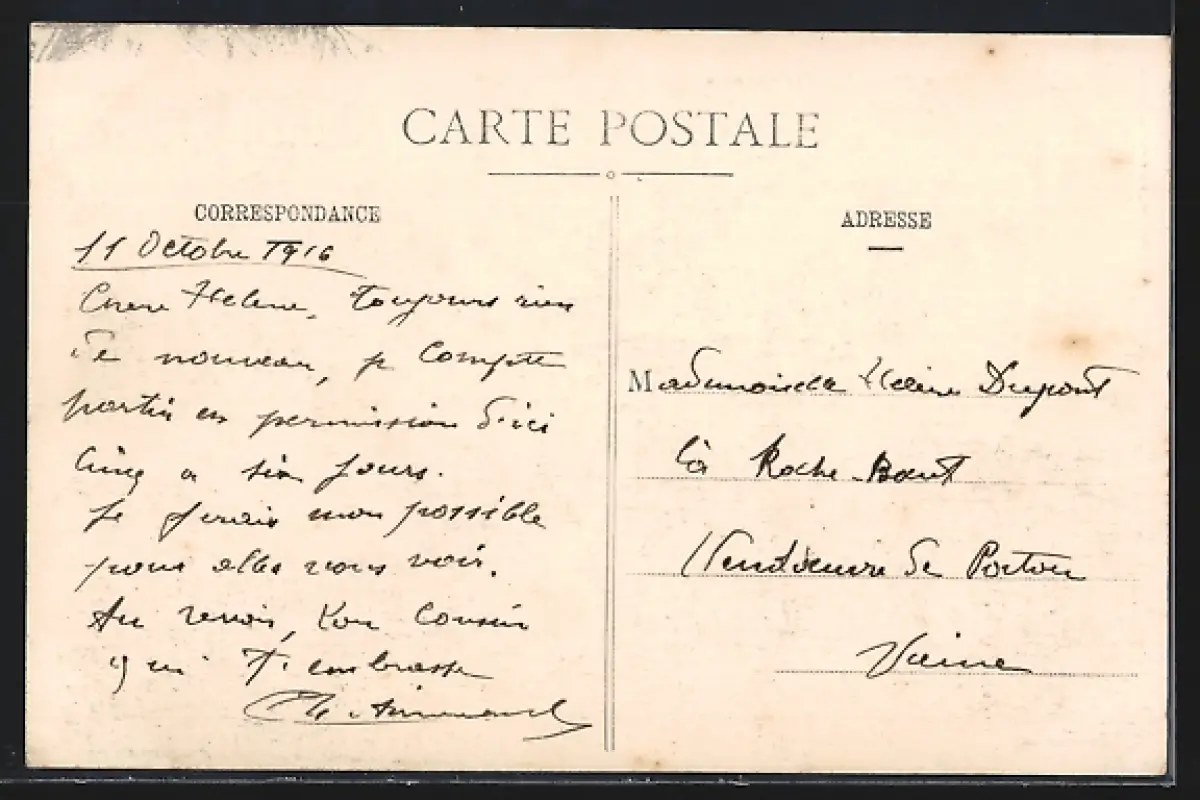 CARTE POSTALE
CORRESPONDANCE
ADRESSE
11 Octobre 1916
Chere Helene, toujours rien
de nouveau, je compte
partir en permission d'ici
cinq a six jours.
Je ferais mon possible
pour aller vous voir.
Au revoir, ton cousin
qui t'embrasse
Mademoiselle Helène Dupont
La Roche
Vendoeuvre de Poitou
Vienne